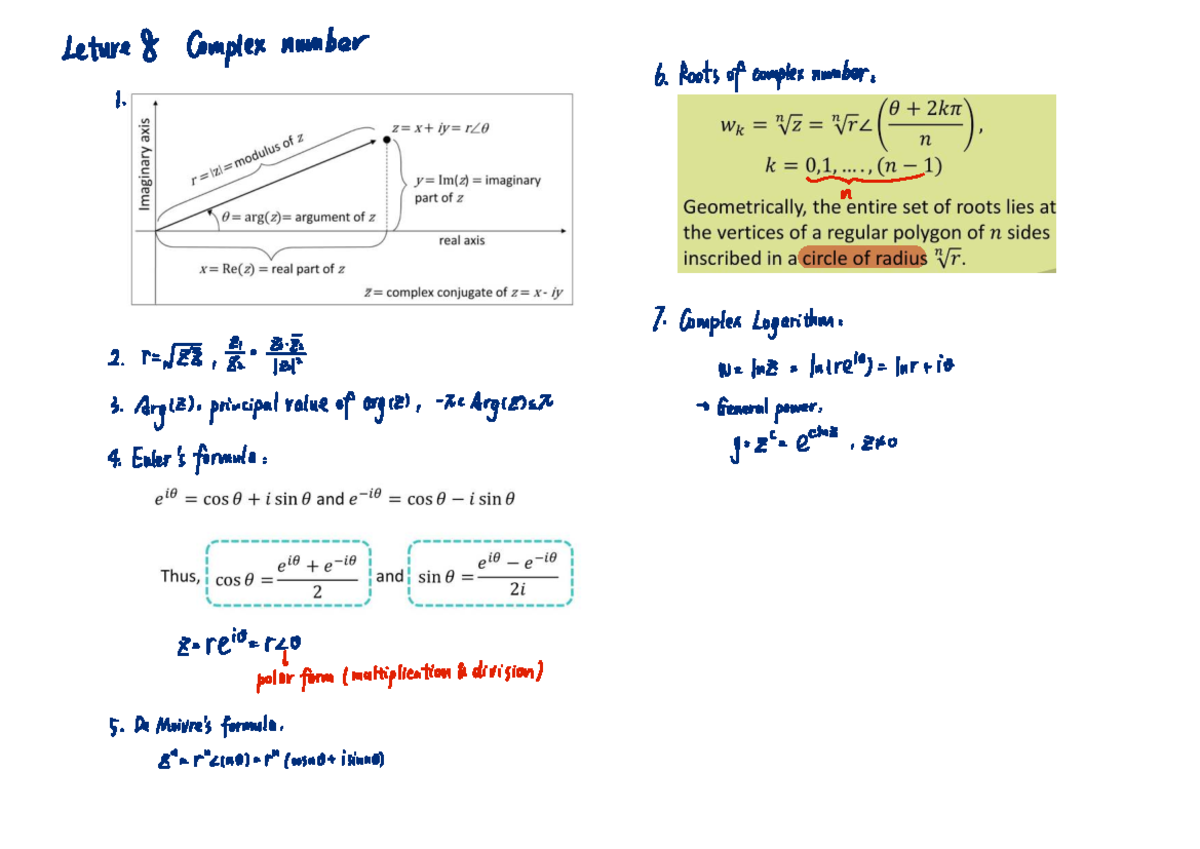 Leture 8 Complex number
1.
Imaginary axis
r = |z| = modulus of z
z = x + iy = r∠θ
y = Im(z) = imaginary
part of z
θ = arg(z)= argument of z
real axis
x = Re(z) = real part of z
z̅ = complex conjugate of z = x - iy
2. r = √(z z̅) , z₁/z₂ = z₁·z̅₂/|z₂|²
3. Arg(z), principal value of arg(z), -π< Arg(z)≤π
4. Euler's formula:
e^{iθ} = cos θ + i sin θ and e^{−iθ} = cos θ − i sin θ
Thus, cos θ = (e^{iθ} + e^{−iθ})/2 and sin θ = (e^{iθ} − e^{−iθ})/2i
z = re^{iθ} = r∠θ
polar form (multiplication & division)
5. De Moivre's formula.
zⁿ = rⁿ∠(nθ) = rⁿ (cosnθ + i sinnθ)
6. Roots of complex number:
w_k = ⁿ√z = ⁿ√r∠((θ + 2kπ)/n),
k = 0,1, …., (n − 1)
n
Geometrically, the entire set of roots lies at
the vertices of a regular polygon of n sides
inscribed in a circle of radius ⁿ√r.
7. Complex Logarithm:
w = lnz = ln(re^{iθ}) = lnr + iθ
→ General power.
y = z^c = e^{clnz} , z≠0